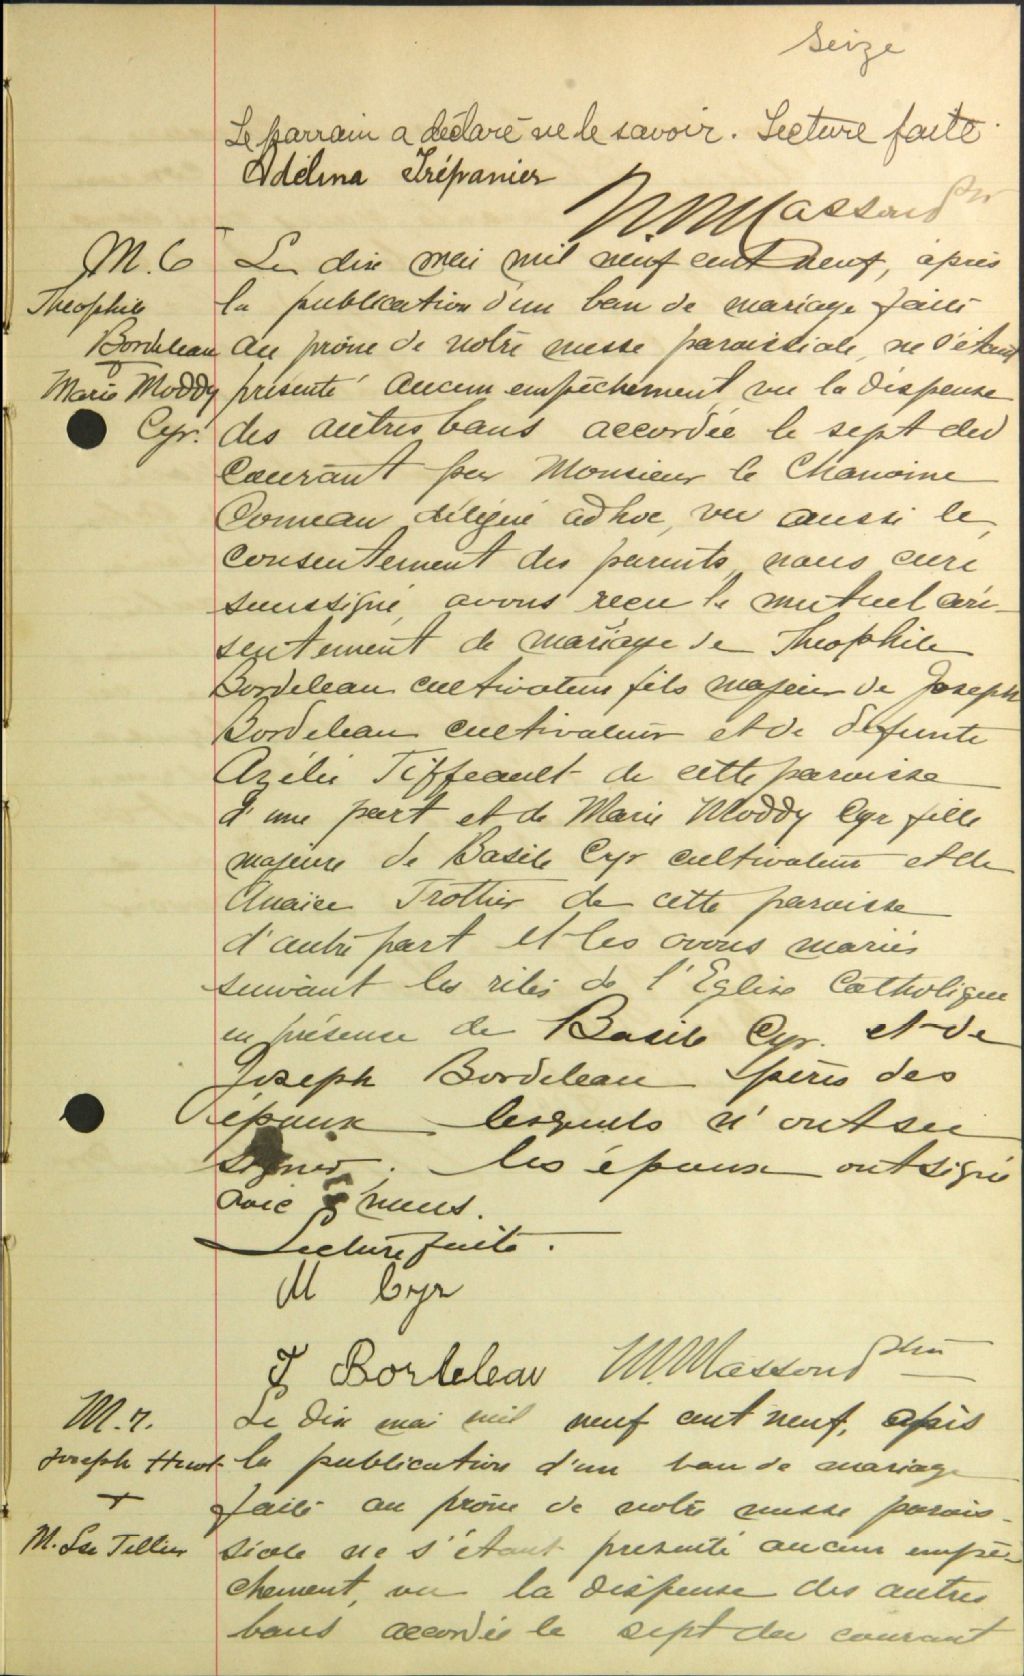 Seize
Le parrain a déclaré ne le savoir. Lecture faite.
Adélina Trépanier
Masson Ptre
M. 6
Théophile
Bordeleau
+
Marie Moddy
Cyr.
Le dix mai mil neuf cent neuf, après
la publication d'un ban de mariage faite
au prône de notre messe paroissiale, ne s'étant
présenté aucun empêchement, vu la dispense
des autres bans accordée le sept du
courant par Monsieur le Chanoine
Comeau délégué ad hoc, vu aussi le
consentement des parents, nous curé
soussigné, avons reçu le mutuel con-
sentement de mariage de Théophile
Bordeleau cultivateur fils majeur de Joseph
Bordeleau cultivateur et de défunte
Azélie Tiffeault de cette paroisse
d'une part et de Marie Moddy Cyr fille
majeure de Basile Cyr cultivateur et de
Anaïce Trottier de cette paroisse
d'autre part et les avons mariés
suivant les rites de l'Eglise Catholique
en présence de Basile Cyr. et de
Joseph Bordeleau pères des
époux lesquels n'ont su
signer. les époux ont signé
avec nous.
Lecture faite.
M Cyr
T Bordeleau Masson Ptre
M. 7.
Joseph Huot
+
M. Lse Tellier
Le dix mai mil neuf cent neuf, après
la publication d'un ban de mariage
faite au prône de notre messe parois-
siale ne s'étant présenté aucun empê-
chement, vu la dispense des autres
bans accordée le sept du courant